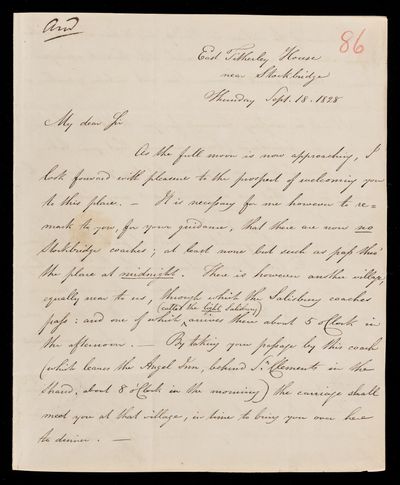 And
86
East Titherley House
near Stockbridge
Thursday Sept. 18. 1828
My dear Sir
As the full moon is now approaching, I
look forward with pleasure to the prospect of welcoming you
to this place. — It is necessary for me however to re=
mark to you, for your guidance, that there are now no
Stockbridge coaches; at least none but such as pass thro'
the place at midnight. There is however another village,
equally near to us, through which the Salisbury coaches
(called the light Salisbury)
pass: and one of which arrives there about 5 o'Clock in
the afternoon. — By taking your passage by this coach
(which leaves the Angel Inn, behind St. Clements in the
Strand, about 8 o'Clock in the morning) the carriage shall
meet you at that village, in time to bring you over here
to dinner. —